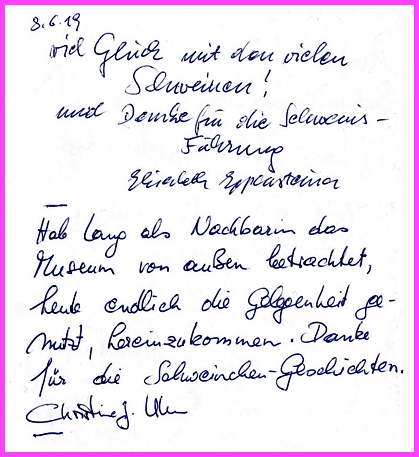 8.6.19
viel Glück mit den vielen
Schweinen!
und Danke für die Schweins-
Führung
Elisabeth
Hab lang als Nachbarin das
Museum von außen betrachtet,
heute endlich die Gelegenheit ge-
nutzt, hereinzukommen. Danke
für die Schweinchen-Geschichten.
Christine J.